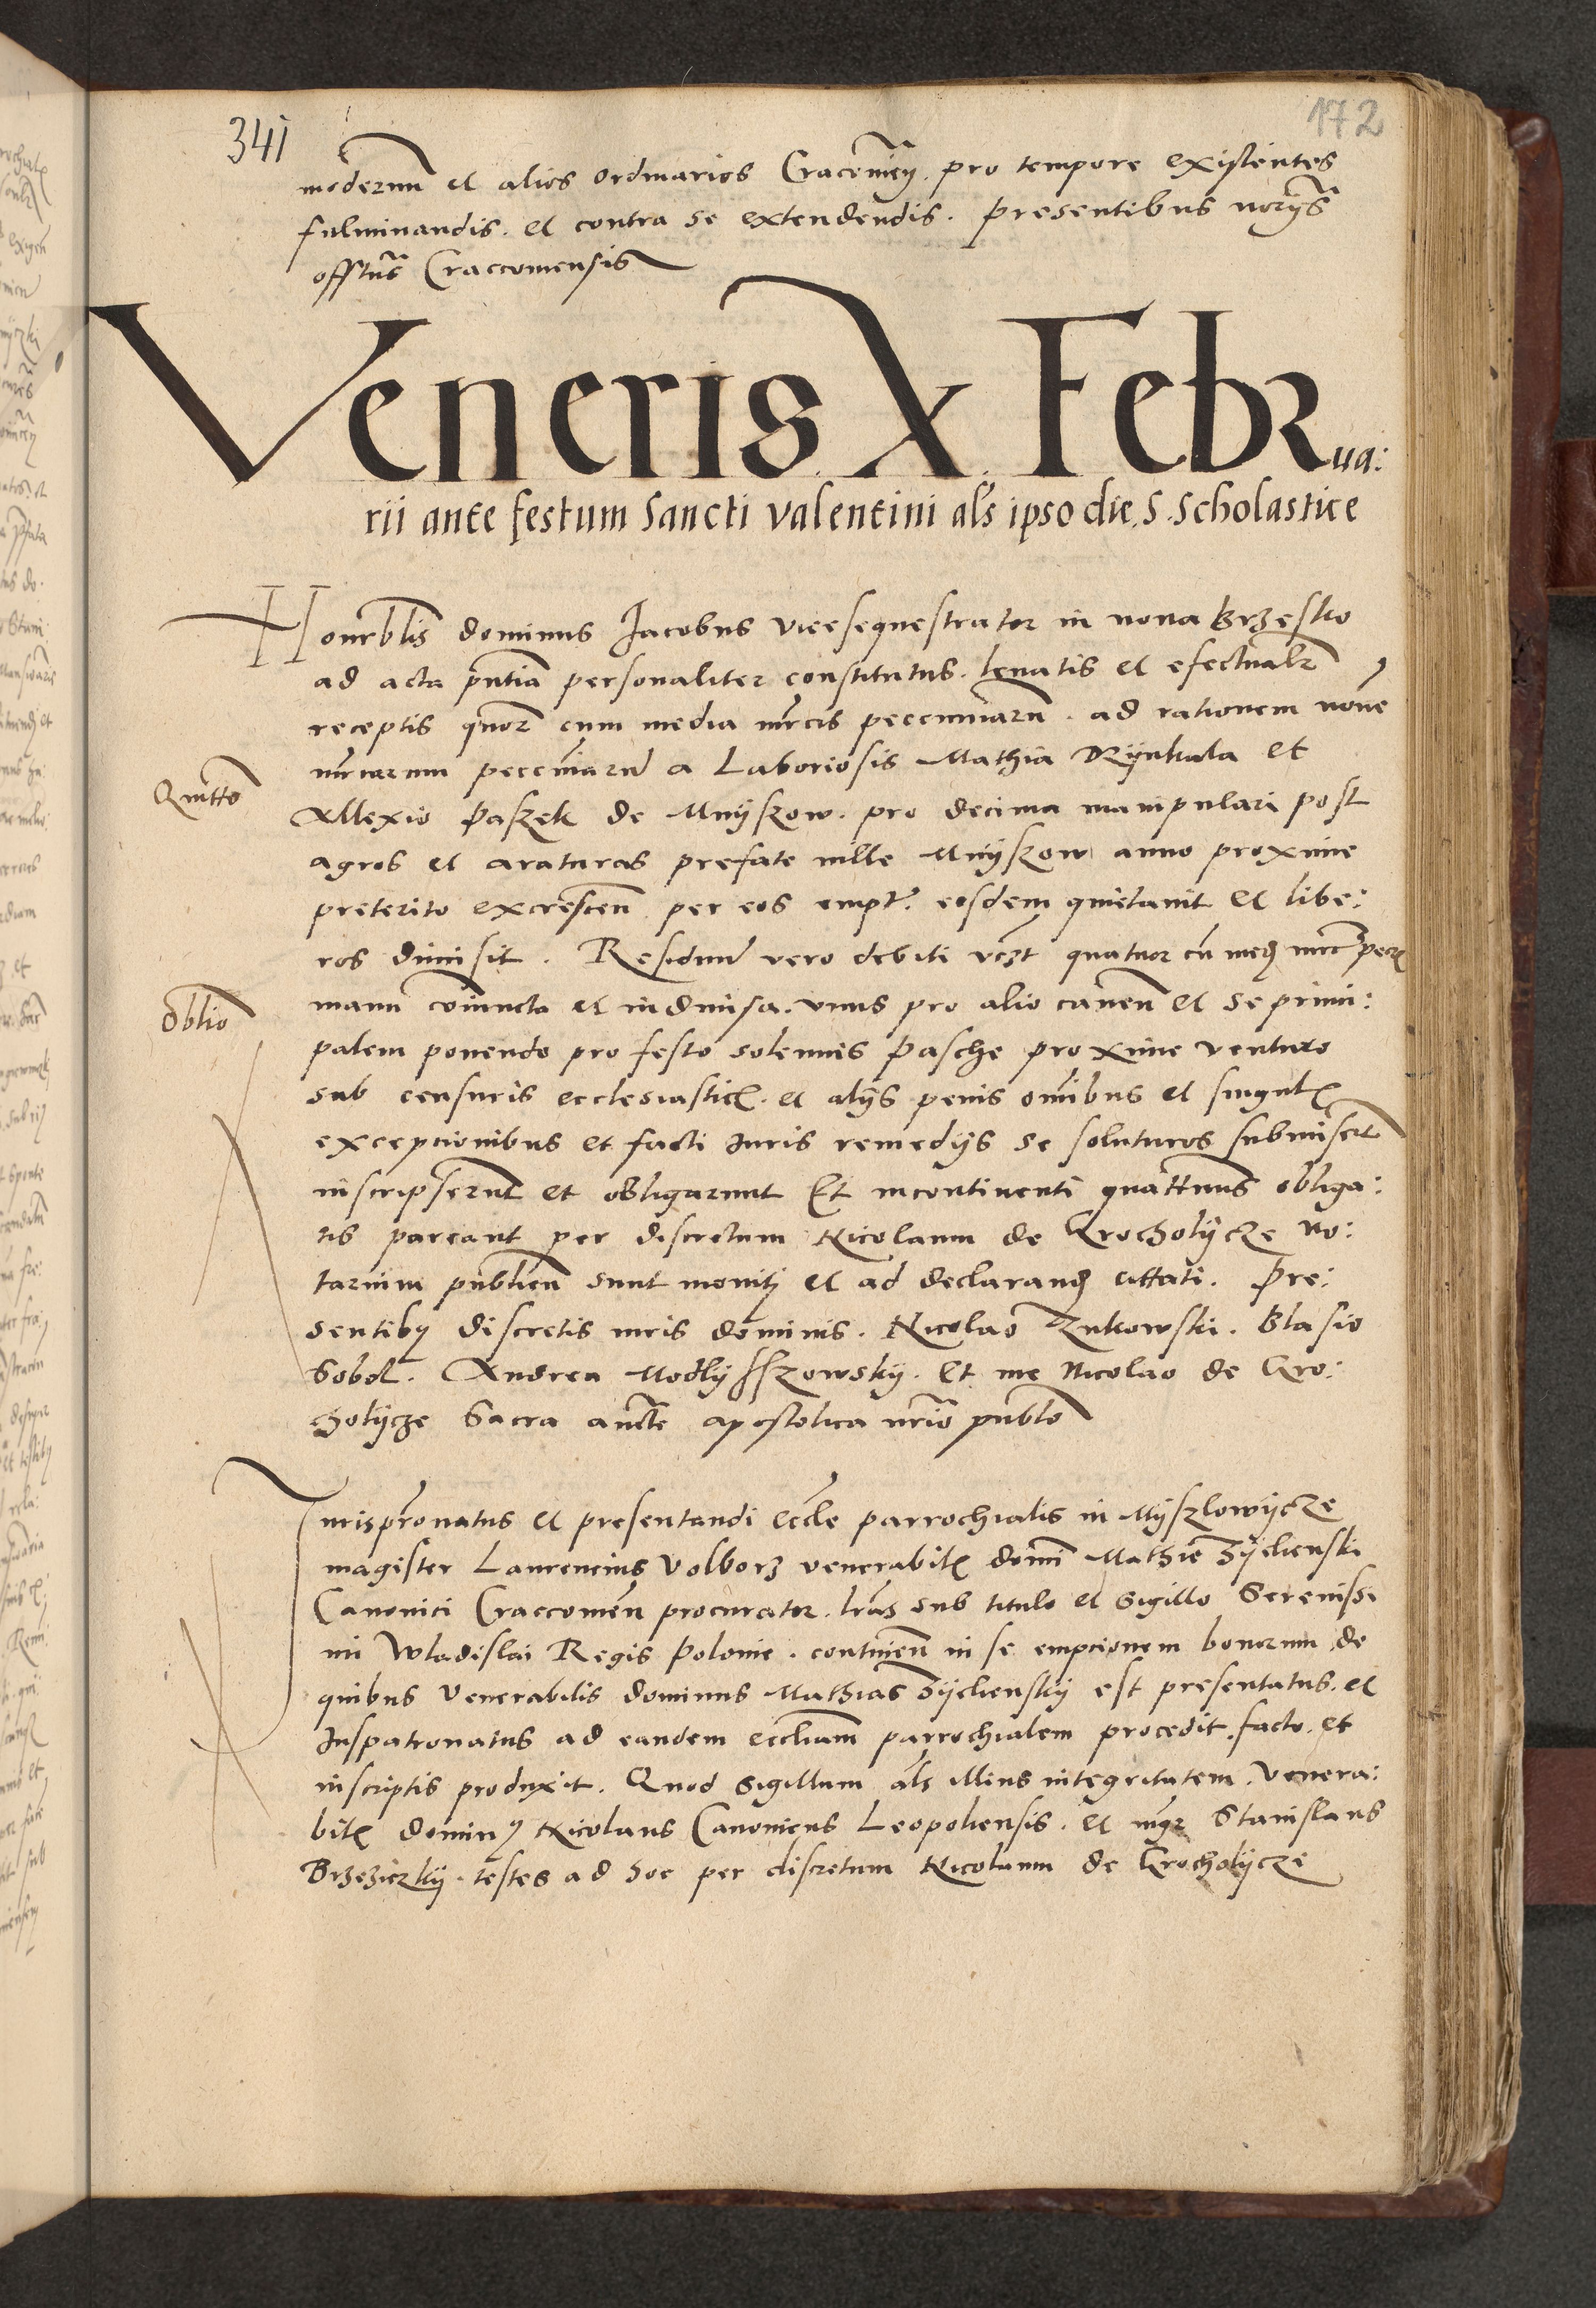 341
172
modernum et alios ordinarios Cracovień. pro tempore existentes
fulminandis. et contra se extendendis. Presentibus noryȷs
offitus Craccoviensis
Veneris X Februa:
rii ante festum Sancti valentini als ipso die. S. Scholastice
Honrblis dominus Jacobus vicesequestrator in nova Brzesko
ad acta pntia personaliter constitutus. levatis et efectualr
receptis quor cum media mrcis peccuniaru. ad rationem nove
mrcarum peccuniaru a Laboriosis Mathia Rÿnkala et
Quitto
Allexio Paszek de Mnÿszow. pro decima manipulari post
agros et araturas prefate ville Mnÿszow anno proxime
preterito excrescen per eos empt. eosdem quietavit et libe:
ros dimisit. Residuu vero debiti vczt quatuor cu med mrc pec
Oblio
manu coniuncta et indivisa. unus pro alio caven et se princi:
palem ponendo pro festo solennis Pasche proxime venturo
sub censuris ecclesiastic. et alÿs penis omibus et singul
exceptionibus et facti Iuris remedÿs se soluturos submisert
inscripserunt et obligarunt Et incontinenti quattenus obliga:
tis pareant per discretum Nicolaum de Krocholÿcze no:
tarium publicu sunt moniti et ad declarand cittati. Pre:
sentiby discretis viris dominis. Nicolao Zukowski. Blasio
Sobol. Andrea Modlyszowskÿ. Et me Nicolao de Kro:
cholÿcze Sacra aucte apostolica nrio publo
Jurispronatus et presentandi eccle parrochialis in Mÿszlowÿcze
magister Laurencius Volborz venerabil domi Mathie Zÿelienski
Canonici Craccovien procurator. lras sub titulo et Sigillo Serenissi
mi Wladislai Regis Polonie. continen in se empcionem bonorum de
quibus Venerabilis dominus Mathias Zÿelienskÿ est presentatus. et
Juspatronatus ad eandem eccliam parrochialem procedit. facto. et
inscriptis produxit. Quod Sigillum als illius integritatem. Venera:
bil dominy Nicolaus Canonicus Leopoliensis. et mgr Stanislaus
Brzeziczkÿ. testes ad hoc per discretum Nicolaum de Krocholÿcze